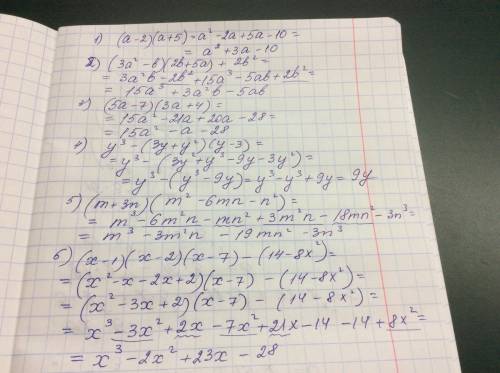 1) (a-2)(a+5)=a²-2a+5a-10=
= a²+3a-10
2) (3a²-b)(2b+5a)+2b²=
= 3a²b-2b²+15a³-5ab+2b²=
= 15a³+3a²b-5ab
3) (5a-7)(3a+4)=
= 15a²-21a+20a-28=
= 15a²-a-28
4) y³-(3y+y²)(y-3)=
= y³-(3y²+y³-9y-3y²)=
= y³-(y³-9y)=y³-y³+9y=9y
5) (m+3n)(m²-6mn-n²)=
= m³-6m²n-mn²+3m²n-18mn²-3n³=
= m³-3m²n-19mn²-3n³
6) (x-1)(x-2)(x-7)-(14-8x²)=
= (x²-x-2x+2)(x-7)-(14-8x²)=
= (x²-3x+2)(x-7)-(14-8x²)=
= x³-3x²+2x-7x²+21x-14-14+8x²=
= x³-2x²+23x-28